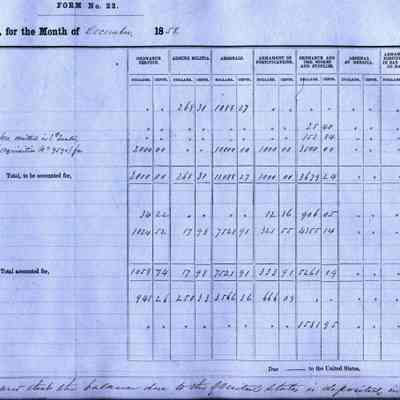 FORM No. 22.
, for the Month of December, 1858.
ORDNANCE SERVICE. ARMING MILITIA. ARSENALS. ARMAMENT OF FORTIFICATIONS. ORDNANCE AND ORD. STORES AND SUPPLIES. ARSENAL AT BENICIA.
DOLLARS. CENTS. DOLLARS. CENTS. DOLLARS. CENTS. DOLLARS. CENTS. DOLLARS. CENTS. DOLLARS. CENTS. DOLLARS.
268 31 1088 27
28 40
150 84
2000 00 10000 00 1000 00 3500 00
Total, to be accounted for, 2000 00 268 31 11088 27 1000 00 3679 24
34 22 12 36 906 05
1024 52 17 98 7521 91 321 55 4355 14
Total accounted for, 1058 74 17 98 7521 91 333 91 5261 19
941 26 250 33 3566 36 666 09
1581 95
Due to the United States.
that the balance due to the United States is deposited in